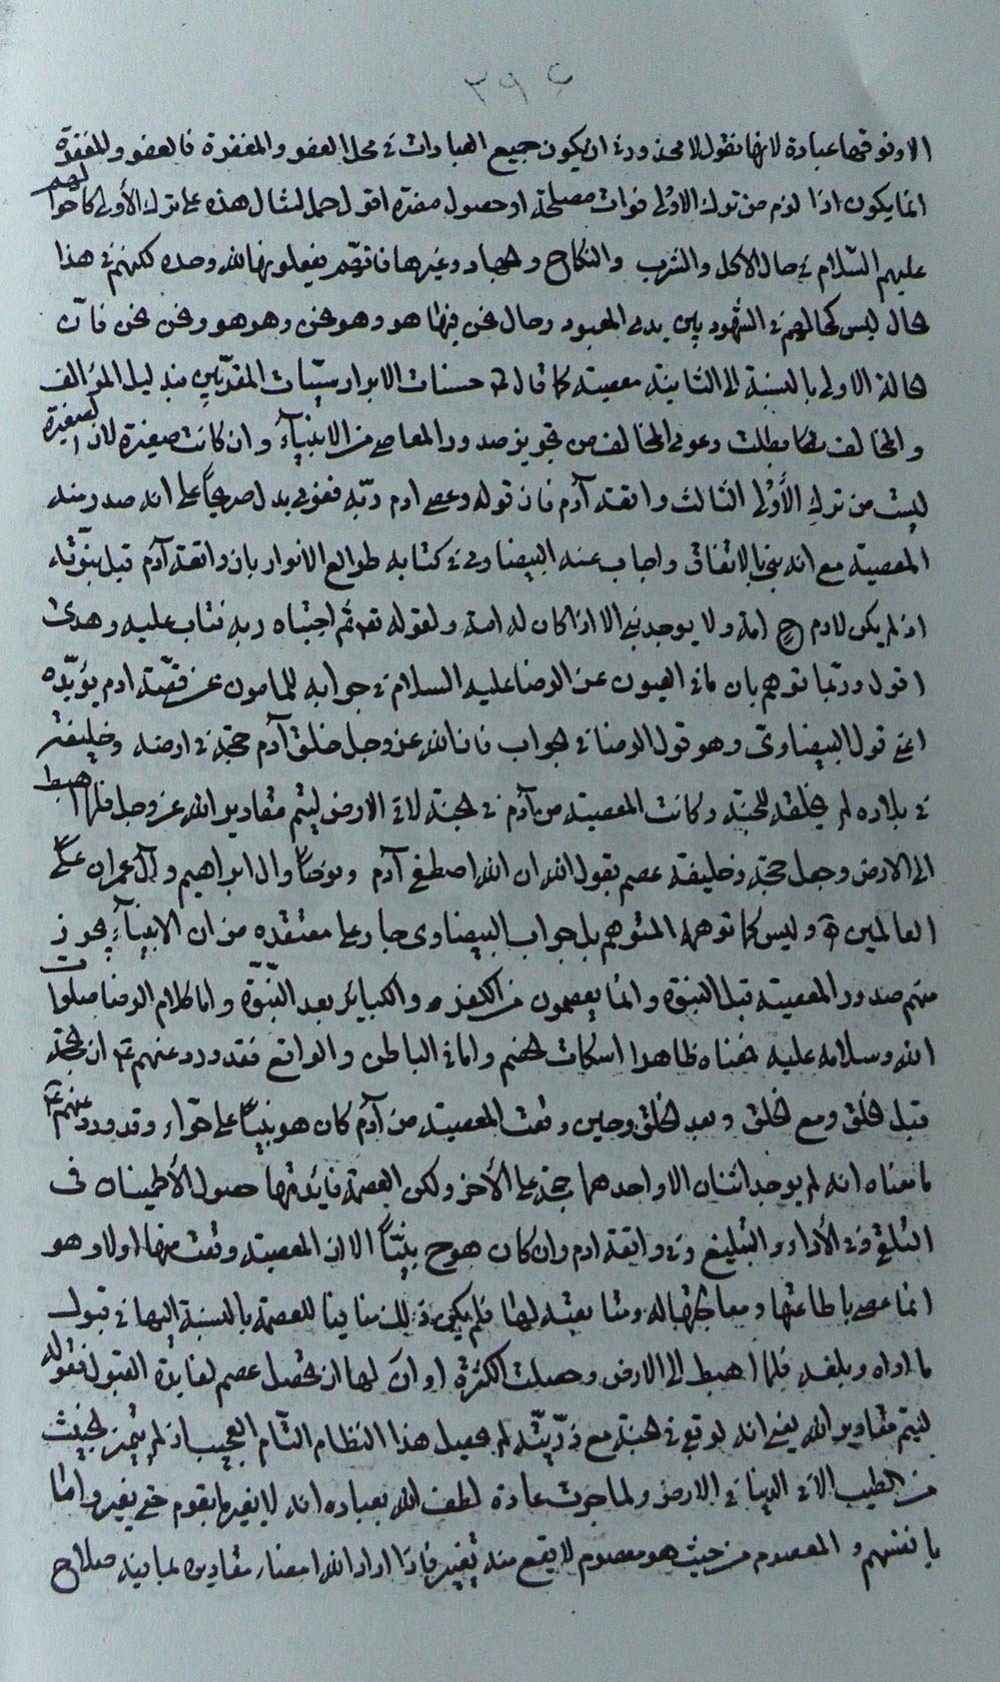 ٢٩٤
الا وفوقها عبادة لانها نقول لا محذور في ان يكون جميع العبادات في محل العفو والمغفرة فالعفو والمغفرة
انما يكون اذا لزم من ترك الاولى فوات مصلحة او حصول مفسدة اقول حمل امثال هذه على ترك الأولى كاحوالهم
عليهم السّلام في حال الاكل والشرب والنكاح والجهاد وغيرها فانهم يفعلونها لله وحده لكنهم في هذا
الحال ليس كحالهم في الشهود بين يدي المعبود وحال نحن فيها هو وهو نحن وهو هو ونحن نحن فان
الحالة الاولى بالنسبة الى الثانية معصية كما قال حسنات الابرار سيّئات المقرّبين بدليل المؤالف
والمخالف فبطلت دعوى المخالف من تجويز صدور المعاصي من الانبيآء وان كانت صغيرة لان الصغيرة
ليست من ترك الأولى الثالث واقعة آدم فان قوله وعصى ادم ربّه فغوى يدل صريحا على انه صدر منه
المعصية مع انه نبي بالاتفاق واجاب عنه البيضاوي في كتابه طوالع الانوار بان واقعة آدم قبل نبوّته
اذ لم يكن لادم ح امة ولا يوجد نبي الا اذا كان له امة ولقوله تعالى ثم اجتباه ربه فتاب عليه وهدى
اقول وربّما توهم بان ما في العيون عن الرضا عليه السلام في جوابه للمامون عن قصّة ادم يؤيّده
اعني قول البيضاوي وهو قول الرضا في الجواب فان الله عز وجل خلق آدم حجة في ارضه وخليفة
في بلاده لم يخلقه للجنة وكانت المعصية من آدم في الجنة لا في الارض ليتم مقادير الله عز وجل فلما اهبط
الى الارض وجعل حجة وخليفة عصم بقول الله ان الله اصطفى آدم ونوحا وال ابراهيم وآل عمران على
العالمين وليس كما توهمه المتوهم بل جواب البيضاوي جار على معتقده من ان الانبيآء يجوز
منهم صدور المعصية قبل النبوّة وانما يعصمون من الكفر والكبائر بعد النّبوّة واما كلام الرضا صلوات
الله وسلامه عليه فمعناه ظاهرا اسكات الخصم واما في الباطن والواقع فقد ورد عنهم ان الحجة
قبل الخلق ومع الخلق وبعد الخلق وحين وقعت المعصية من آدم كان هو نبيّا على حوّاء وقد ورد عنهم
ما معناه انه لم يوجد اثنان الا واحدهما حجة على الأخر ولكن العصمة فائدتها حصول الأطمينان في
التلقي وفي الأداء والتبليغ وفي واقعة ادم وان كان هو ح نبيّا الا ان المعصية وقعت منها اولا وهو
انما عصى باطاعتها ومتابعته لها فلم يكن ذلك منافيا للعصمة بالنسبة اليها في قبول
ما اداه وبلغه فلما اهبط الى الارض وحصلت الكثرة او ان لها ان تحصل عصم لفائدة القبول فقوله
ليتم مقادير الله يعني انه لو وقع في الجنة مع ذرّيّته لم يحصل هذا النظام التّام العجيب اذ لم يتميز الخبيث
من الطيب الا في الدنيا في الارض ولما جرت عادة لطف الله بعباده انه لا يغير ما بقوم حتى يغيروا ما
بانفسهم والمعصوم من حيث هو معصوم لا يقع منه تغيير فاذا اراد الله امضاء مقاديره لما فيه صلاح